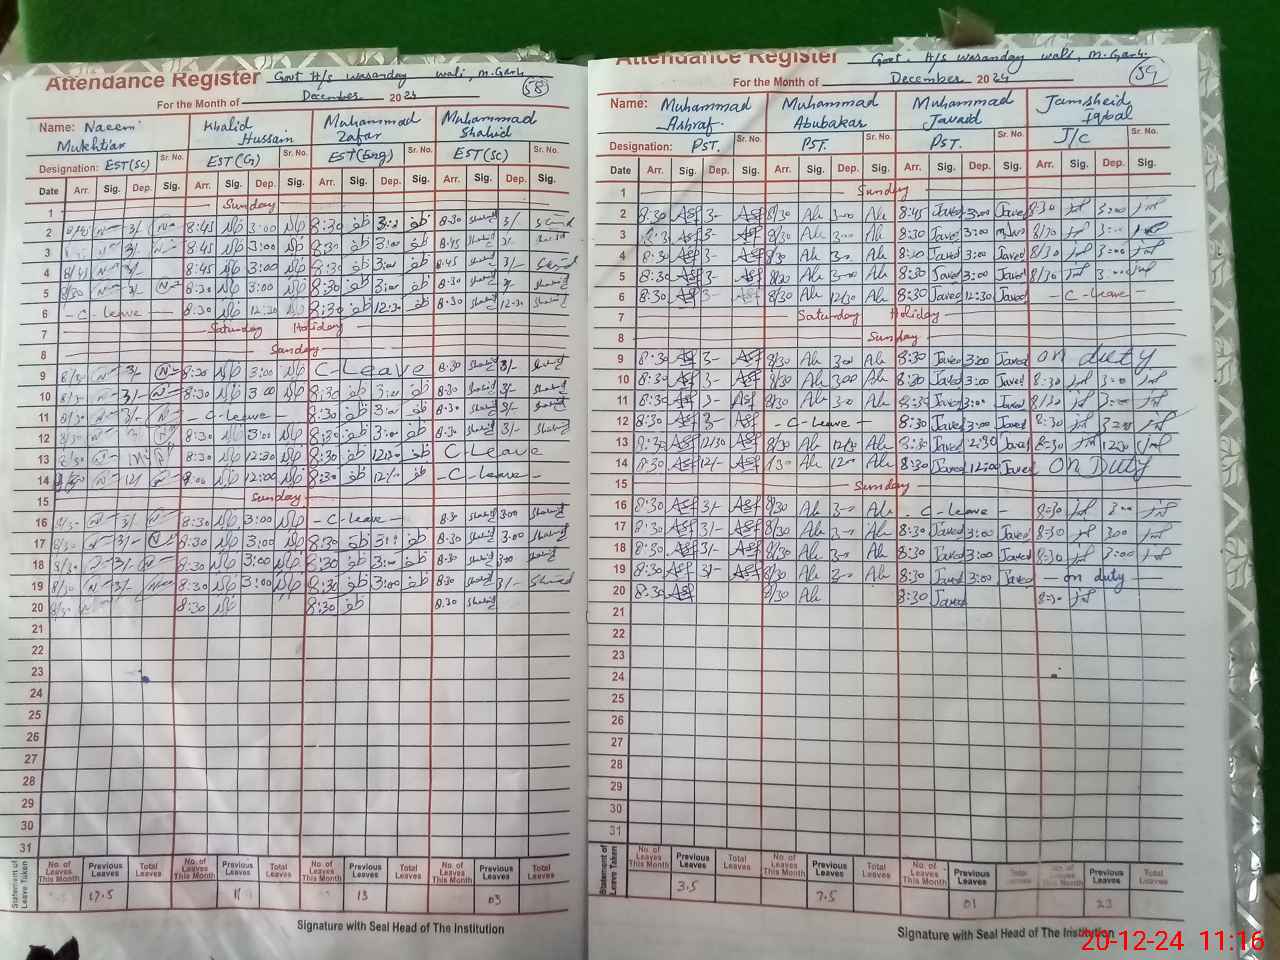 Attendance Register Govt H/s wasanday wali, M.Garh 58
For the Month of December 2024
Name: Naeem Mukhtiar Khalid Hussain Muhammad Zafar Muhammad Shahid
Designation: EST(SC) Sr. No. EST(G) Sr. No. EST(Eng) Sr. No. EST(SC) Sr. No.
Date Arr. Sig. Dep. Sig. Arr. Sig. Dep. Sig. Arr. Sig. Dep. Sig. Arr. Sig. Dep. Sig.
1 Sunday
2 8/45 3/- 8:45 3:00 8:30 3:00 ظفر 8:30 Shahid 3/-
3 3/- 8:45 3:00 8:30 ظفر 3:00 ظفر 8:45 Shahid 3/-
4 8/45 3/- 8:45 3:00 8:30 ظفر 3:00 ظفر 8:45 Shahid 3/-
5 8/30 3/- 8:30 3:00 8:30 ظفر 3:00 ظفر 8:30 Shahid 3/-
6 - C-leave - 8:30 12:30 8:30 ظفر 12:30 ظفر 8:30 Shahid 12:30
7 Saturday Holiday
8 Sunday
9 8/30 3/- 8:30 3:00 C-Leave 8:30 Shahid 3/- Shahid
10 8/30 3/- 8:30 3:00 8:30 ظفر 3:00 ظفر 8:30 Shahid 3/- Shahid
11 8/30 3/- - C-leave - 8:30 ظفر 3:00 ظفر 8:30 Shahid 3/- Shahid
12 8/30 3/- 8:30 3:00 8:30 ظفر 3:00 ظفر 8:30 Shahid 3/- Shahid
13 8/30 8:30 12:30 8:30 ظفر 12:30 ظفر C-Leave
14 12/- 12:00 8:30 ظفر 12/00 ظفر - C-Leave -
15 Sunday
16 8/30 3/- 8:30 3:00 - C-leave - 8:30 Shahid 3:00 Shahid
17 8/30 3/- 8:30 3:00 8:30 ظفر 3:00 ظفر 8:30 Shahid 3:00 Shahid
18 8/30 3/- 8:30 3:00 8:30 ظفر 3:00 ظفر 8:30 Shahid 3:00 Shahid
19 8/30 3/- 8:30 3:00 8:30 ظفر 3:00 ظفر 8:30 Shahid 3/- Shahid
20 8/30 8:30 8:30 ظفر 8:30 Shahid
21
22
23
24
25
26
27
28
29
30
31
Statement of Leave Taken No. of Leaves This Month Previous Leaves Total Leaves No. of Leaves This Month Previous Leaves Total Leaves No. of Leaves This Month Previous Leaves Total Leaves No. of Leaves This Month Previous Leaves Total Leaves
17.5 11 13 03
Signature with Seal Head of The Institution
Attendance Register Govt. H/s wasanday wali, M.Garh. 59
For the Month of December 2024
Name: Muhammad Ashraf Muhammad Abubakar Muhammad Javaid Jamsheid Iqbal
Designation: PST. Sr. No. PST. Sr. No. PST. Sr. No. J/C Sr. No.
Date Arr. Sig. Dep. Sig. Arr. Sig. Dep. Sig. Arr. Sig. Dep. Sig. Arr. Sig. Dep. Sig.
1 Sunday
2 8:30 Asf 3- Asf 8/30 Ab 3:00 Ab 8:45 Javed 3:00 Javed 8:30 3:00
3 8:30 Asf 3- Asf 8/30 Ab 3:00 Ab 8:30 Javed 3:00 8/30 3:00
4 8:30 Asf 3- Asf 8/30 Ab 3:00 Ab 8:30 Javed 3:00 Javed 8/30 3:00
5 8:30 Asf 3- Asf 8/30 Ab 3:00 Ab 8:30 Javed 3:00 Javed 8/30 3:00
6 8:30 Asf 3- Asf 8/30 Ab 12/30 Ab 8:30 Javed 12:30 Javed - C-leave -
7 Saturday Holiday
8 Sunday
9 8:30 Asf 3- Asf 8/30 Ab 3:00 Ab 8:30 Javed 3:00 Javed on duty
10 8:30 Asf 3- Asf 8/30 Ab 3:00 Ab 8:30 Javed 3:00 Javed 8:30 3:00
11 8:30 Asf 3- Asf 8/30 Ab 3:00 Ab 8:30 Javed 3:00 Javed 8/30 3:00
12 8:30 Asf 3- Asf - C-leave - 8:30 Javed 3:00 Javed 8:30 3:00
13 8:30 Asf 12/30 Asf 8/30 Ab 12/30 Ab 8:30 Javed 12:30 Javed 8:30 12:30
14 8:30 Asf 12/- Asf Ab 12:00 Ab 8:30 Javed 12:00 Javed ON DUTY
15 Sunday
16 8:30 Asf 3/- Asf 8/30 Ab 3:00 Ab - C-leave - 8:30 3:00
17 8:30 Asf 3/- Asf 8/30 Ab 3:00 Ab 8:30 Javed 3:00 Javed 8:30 3:00
18 8:30 Asf 3/- Asf 8/30 Ab 3:00 Ab 8:30 Javed 3:00 Javed 8:30 3:00
19 8:30 Asf 3/- Asf 8/30 Ab 3:00 Ab 8:30 Javed 3:00 Javed - on duty -
20 8:30 Asf 8/30 Ab 8:30 Javed 8:30
21
22
23
24
25
26
27
28
29
30
31
Statement of Leave Taken No. of Leaves This Month Previous Leaves Total Leaves No. of Leaves This Month Previous Leaves Total Leaves No. of Leaves This Month Previous Leaves Total Leaves No. of Leaves This Month Previous Leaves Total Leaves
3.5 7.5 01 23
Signature with Seal Head of The Institution
20-12-24 11:16